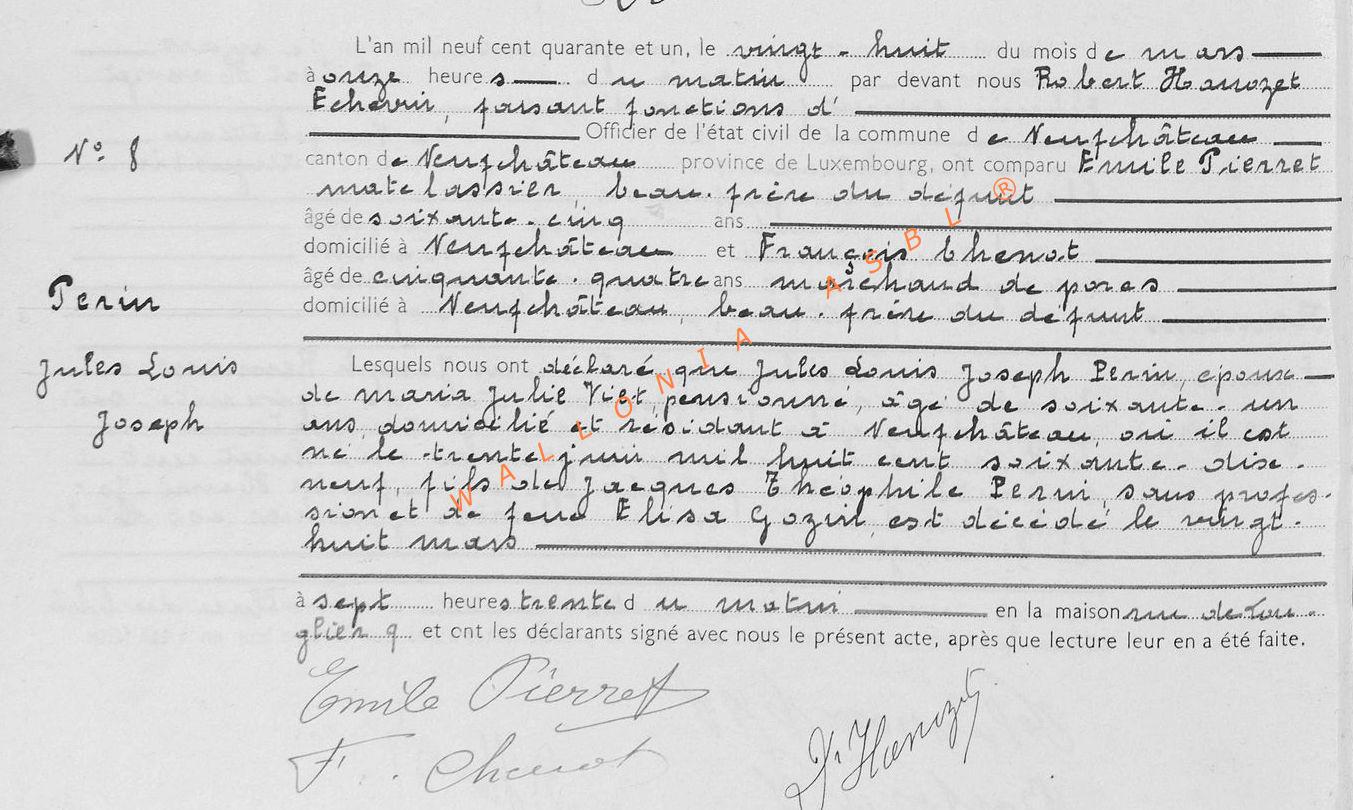 L'an mil neuf cent quarante et un, le vingt-huit du mois de mars
à onze heures du matin par devant nous Robert Hanozet
Echevin, faisant fonctions d'
Officier de l'état civil de la commune de Neufchâteau
N° 8 canton de Neufchâteau province de Luxembourg, ont comparu Emile Pierret
matelassier, beau-frère du défunt
âgé de soixante-cinq ans
domicilié à Neufchâteau et François Chenot
âgé de cinquante-quatre ans marchand de porcs
Perin domicilié à Neufchâteau, beau-frère du défunt
Jules Louis Lesquels nous ont déclaré que Jules Louis Joseph Perin, époux
de Maria Julie pensionné, âgé de soixante-un
Joseph ans, domicilié et résidant à Neufchâteau, où il est
né le trente juin mil huit cent soixante-dix-
neuf, fils de Jacques Théophile Perin, sans profes-
sion et de feue Elisa Gozin, est décédé le vingt-
huit mars
à sept heures trente du matin en la maison rue de Lon-
glier 9 et ont les déclarants signé avec nous le présent acte, après que lecture leur en a été faite.
Emile Pierret
F. Chenot
Hanozet
WALLONIA ASBL ®